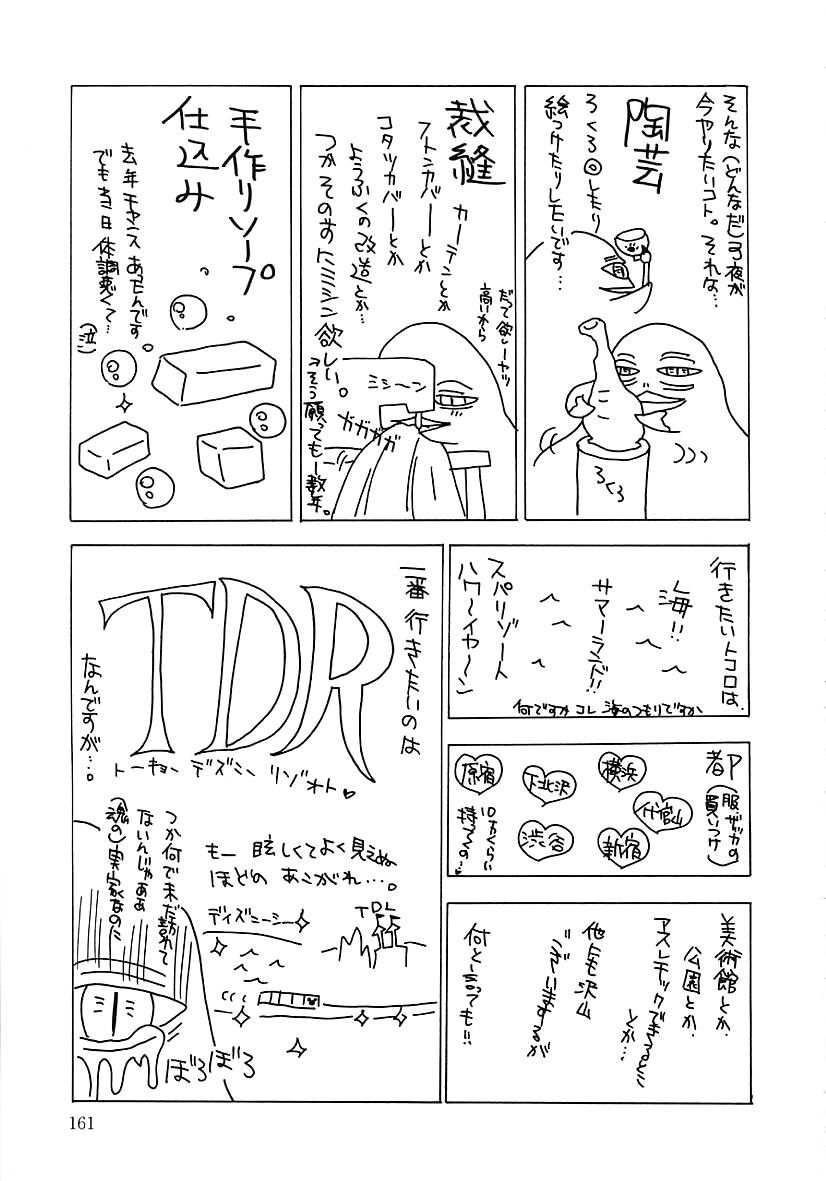 そんな(どんなだ)弓夜が
今ヤりたいコト。それな…
陶芸
ろくろ◎したり
絵つけたりしたいです…
ろくろ
裁縫
カーテンとか
フトンカバーとか
コタツカバーとか
ようふくの改造とか…
つかそのすにミシン欲しい。
→そう願っても一数年。
だって欲しーヤツ
高いから
ミシーン
ガガガガ
手作リソープ
仕込み
去年チャンスあったんです
でも当日体調悪くて…
(泣)
行きたいトコロは、
海!!
サマーランド!!
スパリゾート
ハワ〜イヤ〜ン
何ですかコレ 海のつもりですか
都(服・ザッカの
買いつけ)
横浜
代官山
新宿
下北沢
渋谷
原宿
10万くらい
持ってくの…♡
美術館とか、
公園とか、
アスレチックできるトコ
とか…
他にも沢山
ございまするが
何と言っても!!
一番行きたいのは
TDR
トーキョー ディズニー リゾォト♥
なんですが…。
もー 眩しくてよく見えぬ
ほどの あこがれ…。
ディズニーシー
TDL
つか何で未だ訪れて
ないんじゃああ
(魂の)実家なのに
ぼろぼろ
161